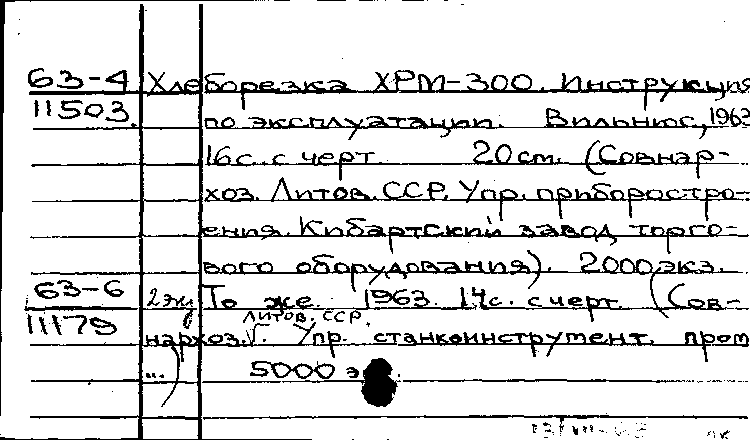 63-4 Хлеборезка ХРМ-300. Инструкция
11503. по эксплуатации. Вильнюс, 1963
16с. с черт. 20 см. (Совнар-
хоз. Литов. ССР. Упр. приборостро-
ения. Кибартский завод торго-
вого оборудования). 2000 экз.
63-6 2 экз То же. 1963. 14с. с черт. (Сов-
Литов. ССР.
11179 нархоз. V. Упр. станкоинструмент. пром
..) 5000 э